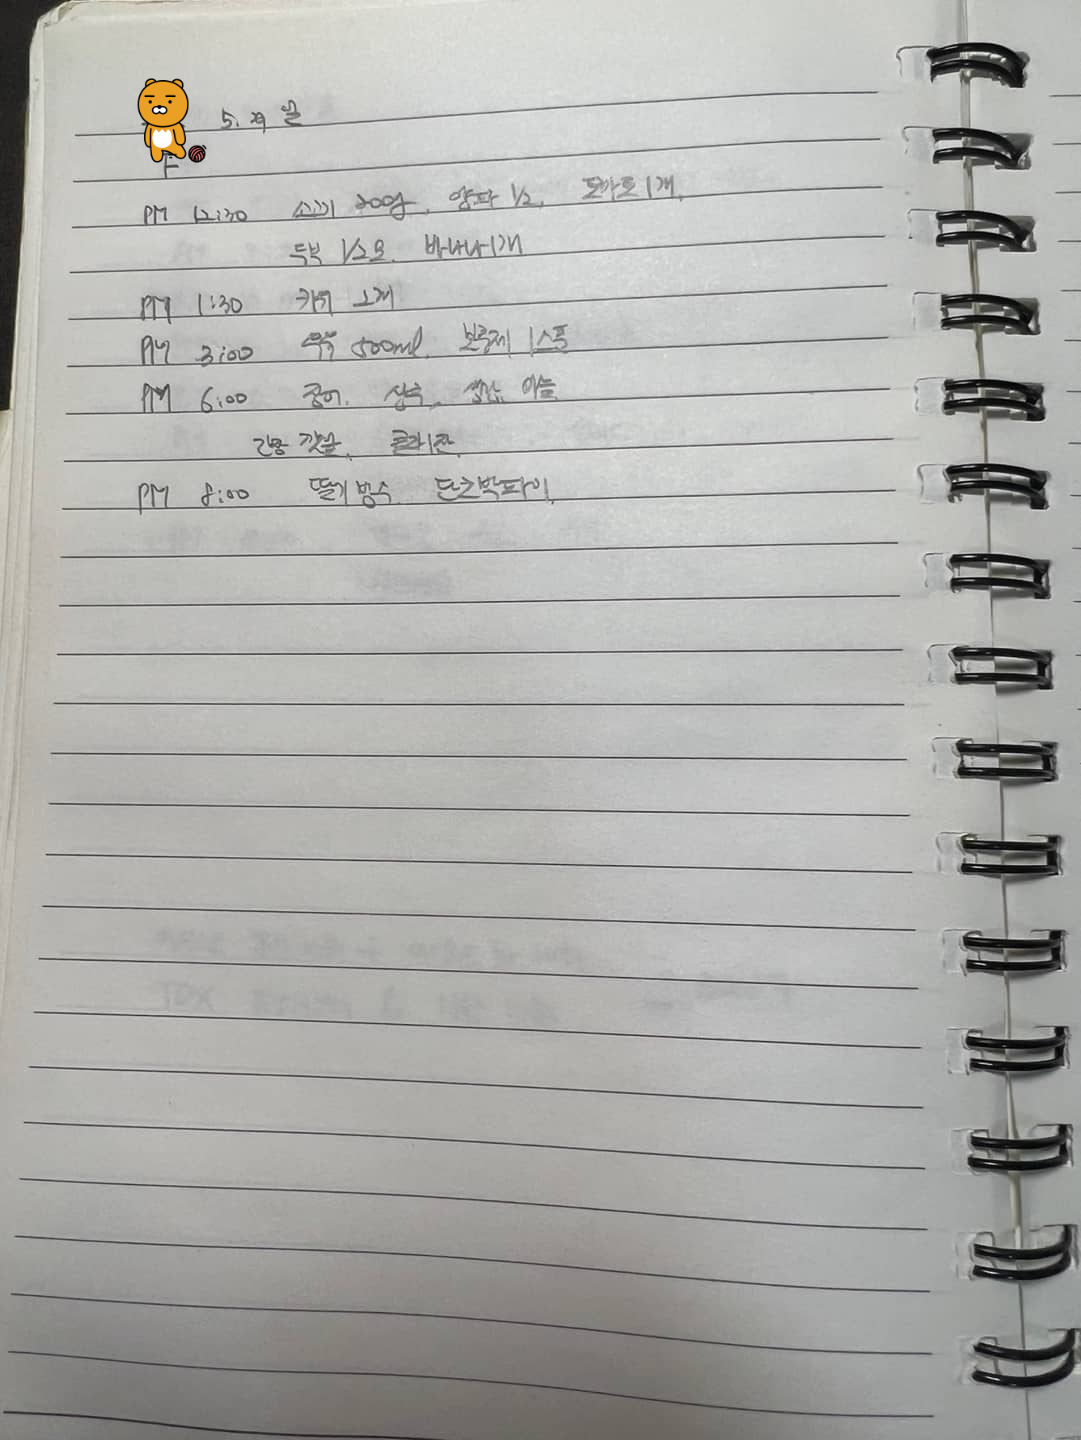 5. 29 일
PM 12:30 소고기 200g, 양파 1/2, 토마토 1개,
두부 1/2모, 바나나 1개
PM 1:30 키위 2개
PM 3:00 우유 500ml, 보충제 1스푼
PM 6:00 장어, 상추, 생강, 마늘
깻잎, 콜라 1잔,
PM 8:00 딸기빙수, 단호박파이,